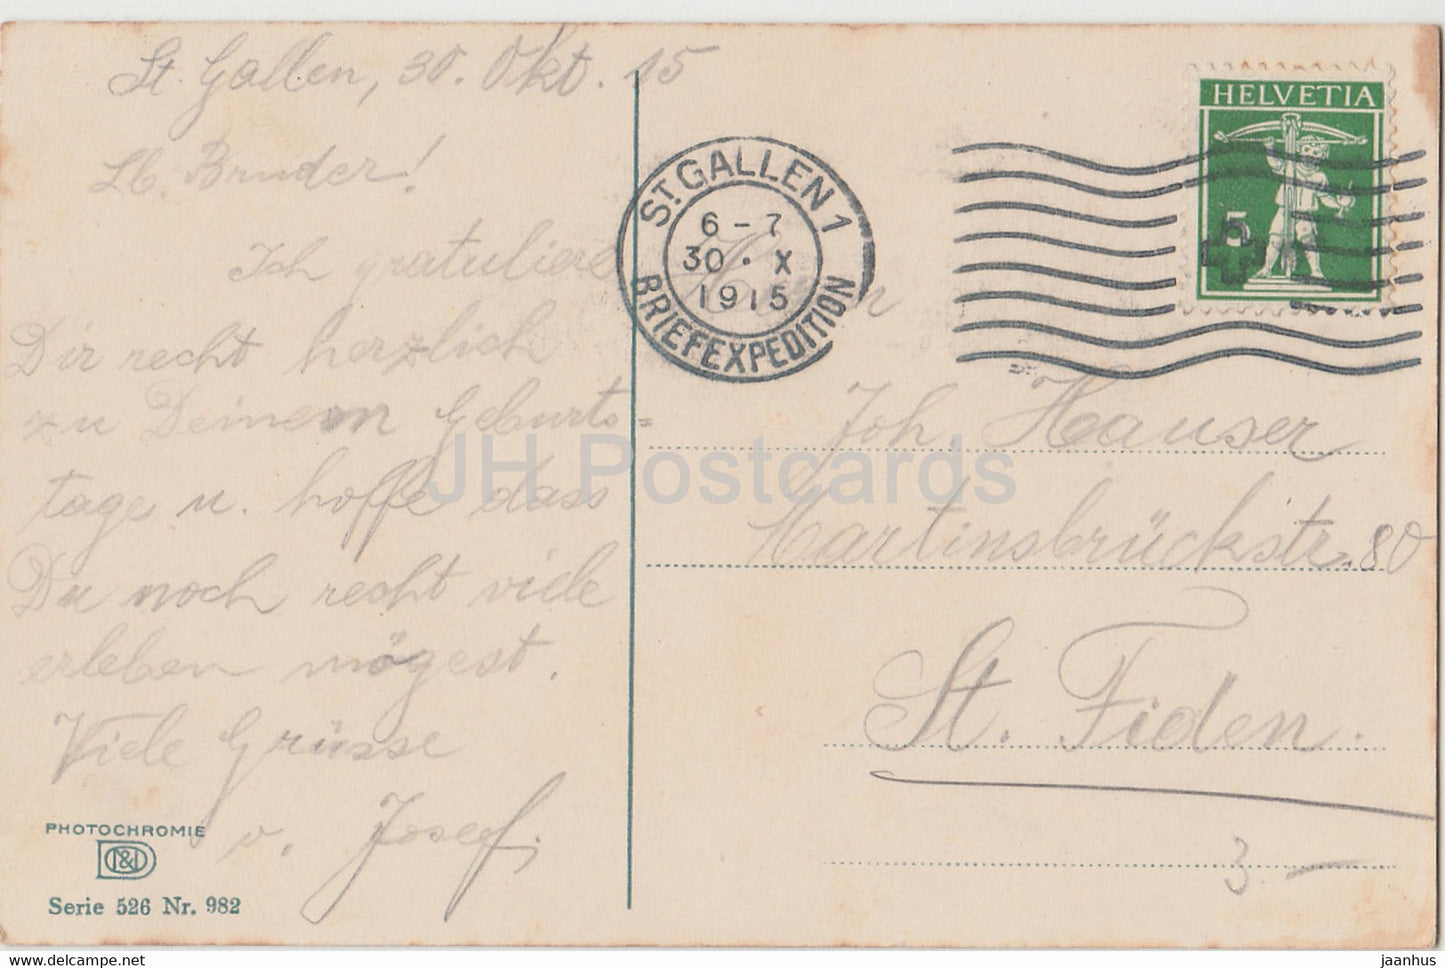 St. Gallen, 30. Okt. 15
Lb. Bruder!
Ich gratuliere
Dir recht herzlich
zu Deinem Geburts=
tage u. hoffe dass
Du noch recht viele
erleben mögest.
Viele Grüsse
v. Josef.
PHOTOCHROMIE
D&D
Serie 526 Nr. 982
ST GALLEN 1
6-7
30. X
1915
BRIEFEXPEDITION
HELVETIA
5
Herrn
Joh. Hauser
Martinsbrückstr. 80
St. Fiden.
3.—
JH Postcards
www.delcampe.net
jaanhus